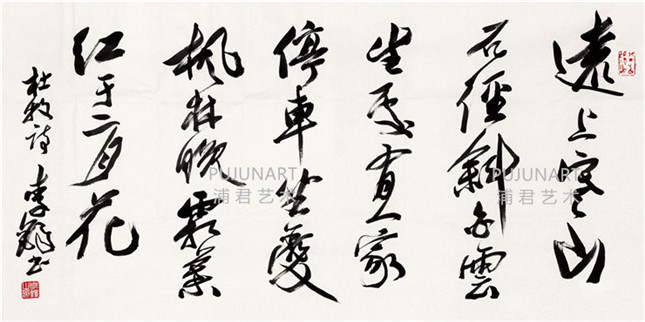 遠上寒山
石徑斜白雲
生處有人家
停車坐愛
楓林晚霜葉
红于二月花
杜牧诗
李 书
PUJUNART
浦君艺术
PUJUNART
浦君艺术